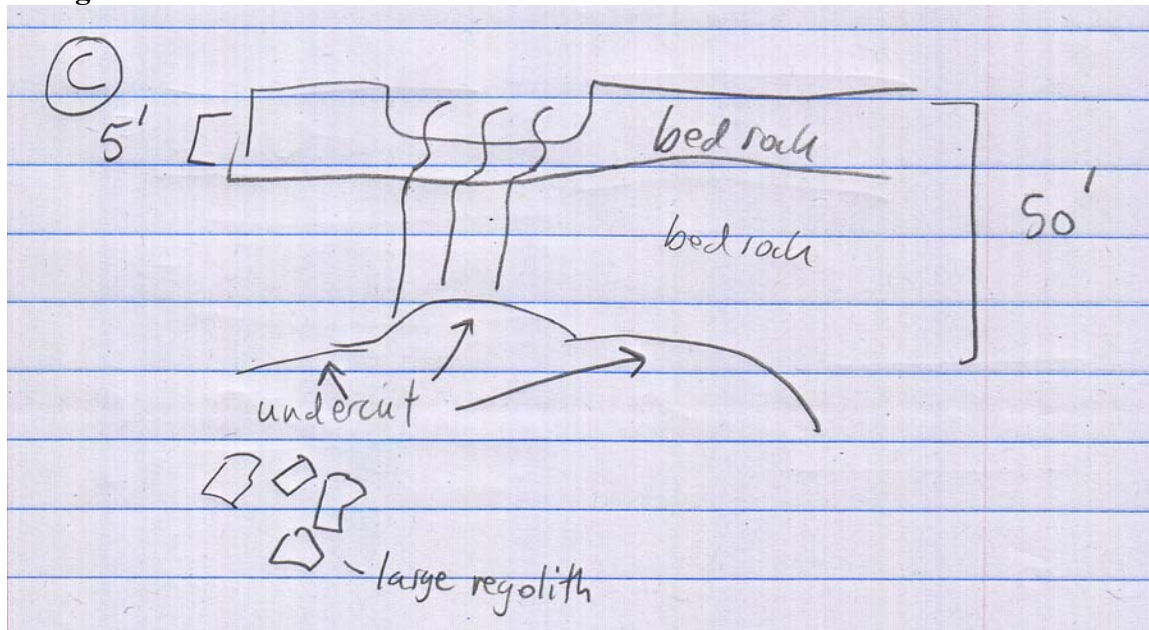 C
5'
bedrock
50'
bedrock
undercut
large regolith